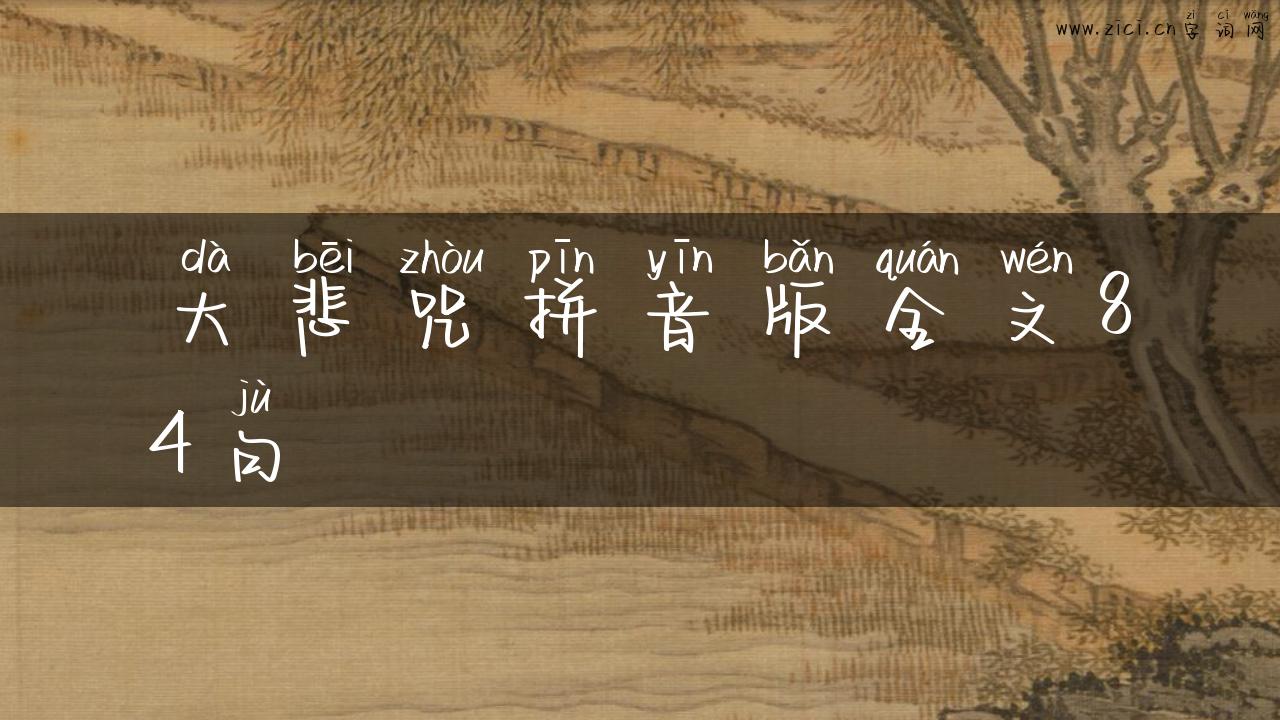 zì cí wǎng
www.zici.cn字词网
dà bēi zhòu pīn yīn bǎn quán wén
大悲咒拼音版全文8
jù
4句